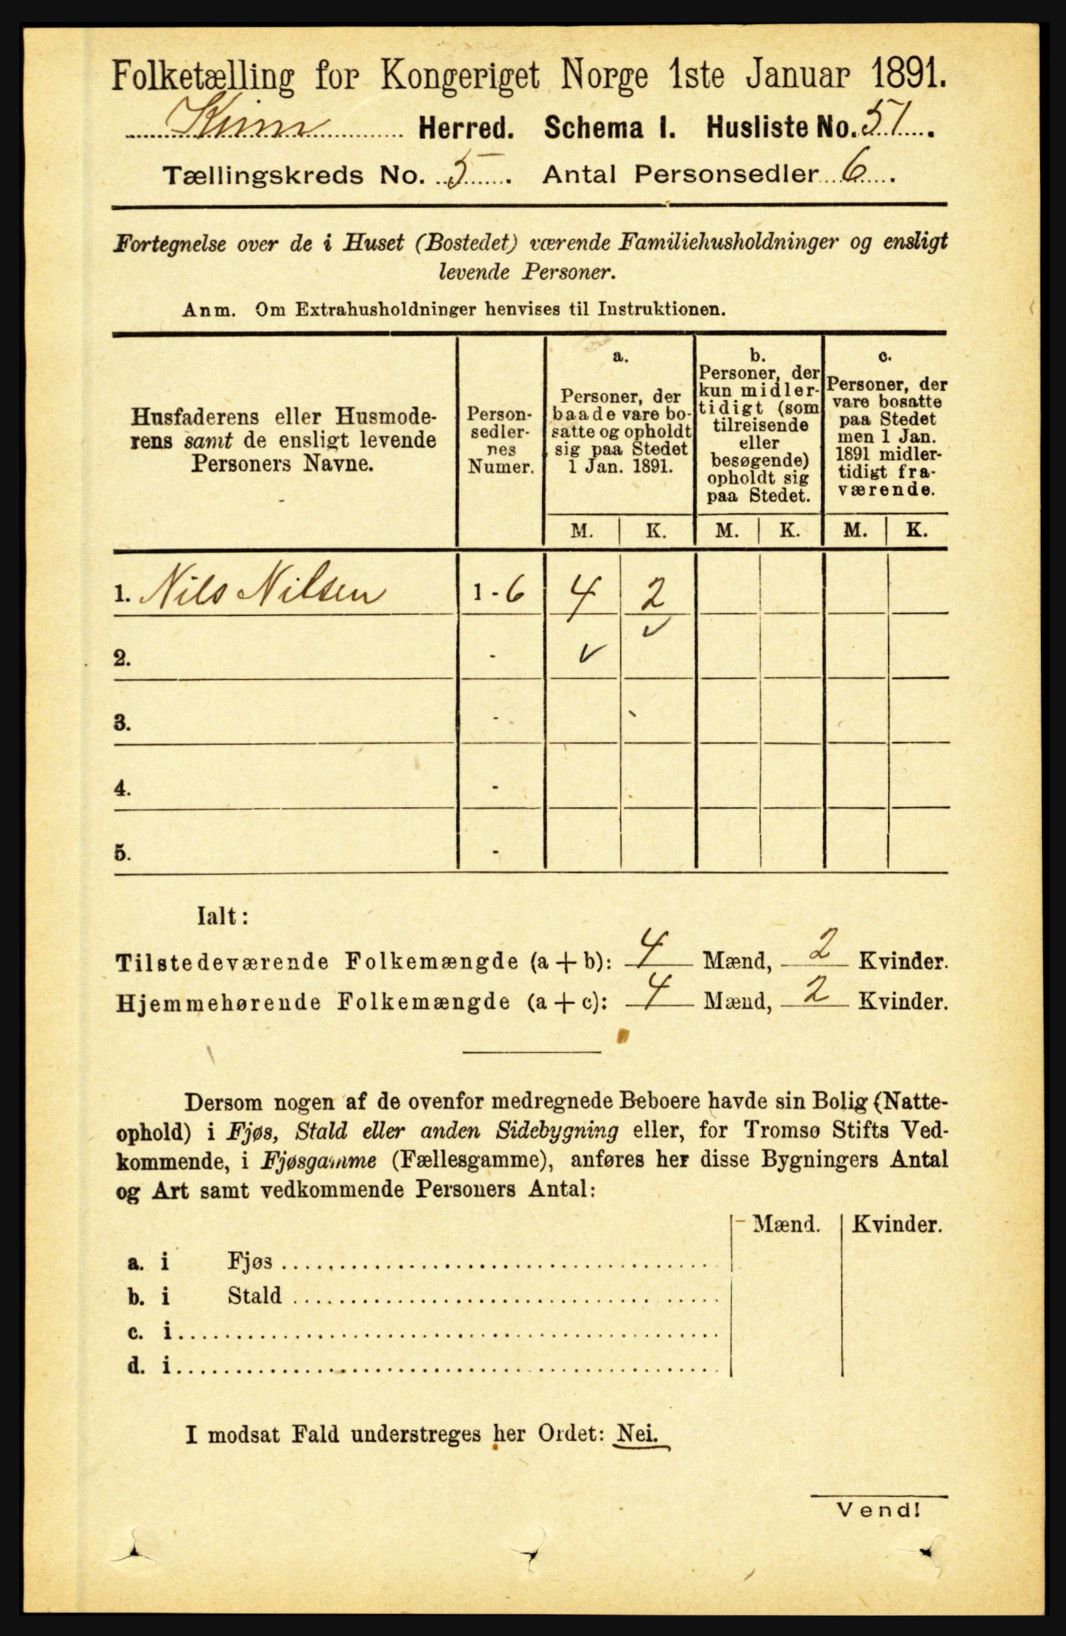 Folketælling for Kongeriget Norge 1ste Januar 1891.
Kinn Herred. Schema I. Husliste No. 51.
Tællingskreds No. 5. Antal Personsedler 6.
Fortegnelse over de i Huset (Bostedet) værende Familiehusholdninger og ensligt
levende Personer.
Anm. Om Extrahusholdninger henvises til Instruktionen.
Husfaderens eller Husmode-
rens samt de ensligt levende
Personers Navne.
Person-
sedler-
nes
Numer.
a.
Personer, der
baade vare bo-
satte og opholdt
sig paa Stedet
1 Jan. 1891.
b.
Personer, der
kun midler-
tidigt (som
tilreisende
eller
besøgende)
opholdt sig
paa Stedet.
c.
Personer, der
vare bosatte
paa Stedet
men 1 Jan.
1891 midler-
tidigt fra-
værende.
M. K. M. K. M. K.
1. Nils Nilsen 1 - 6 4 2
2. - ✓ ✓
3. -
4. -
5. -
Ialt:
Tilstedeværende Folkemængde (a + b): 4 Mænd, 2 Kvinder.
Hjemmehørende Folkemængde (a + c): 4 Mænd, 2 Kvinder.
Dersom nogen af de ovenfor medregnede Beboere havde sin Bolig (Natte-
ophold) i Fjøs, Stald eller anden Sidebygning eller, for Tromsø Stifts Ved-
kommende, i Fjøsgamme (Fællesgamme), anføres her disse Bygningers Antal
og Art samt vedkommende Personers Antal:
Mænd. Kvinder.
a. i Fjøs
b. i Stald
c. i
d. i
I modsat Fald understreges her Ordet: Nei.
Vend!